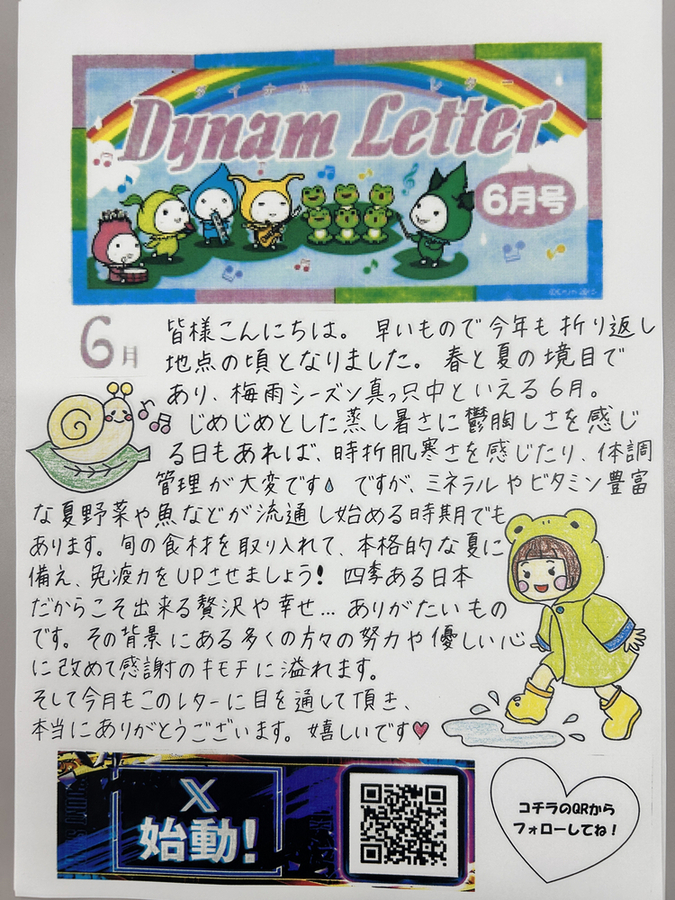 ダイナム レター
Dynam Letter
6月号
6月
皆様こんにちは。 早いもので今年も折り返し
地点の頃となりました。 春と夏の境目で
あり、梅雨シーズン真っ只中といえる6月。
じめじめとした蒸し暑さに鬱胸しさを感じ
る日もあれば、時折肌寒さを感じたり、体調
管理が大変です ですが、ミネラルやビタミン豊富
な夏野菜や魚などが流通し始める時期でも
あります。旬の食材を取り入れて、本格的な夏に
備え、免疫力をUPさせましょう! 四季ある日本
だからこそ出来る贅沢や幸せ… ありがたいもの
です。その背景にある多くの方々の努力や優しい心
に改めて感謝のキモチに溢れます。
そして今月もこのレターに目を通して頂き、
本当にありがとうございます。嬉しいです♥
X
始動!
コチラのQRから
フォローしてね!